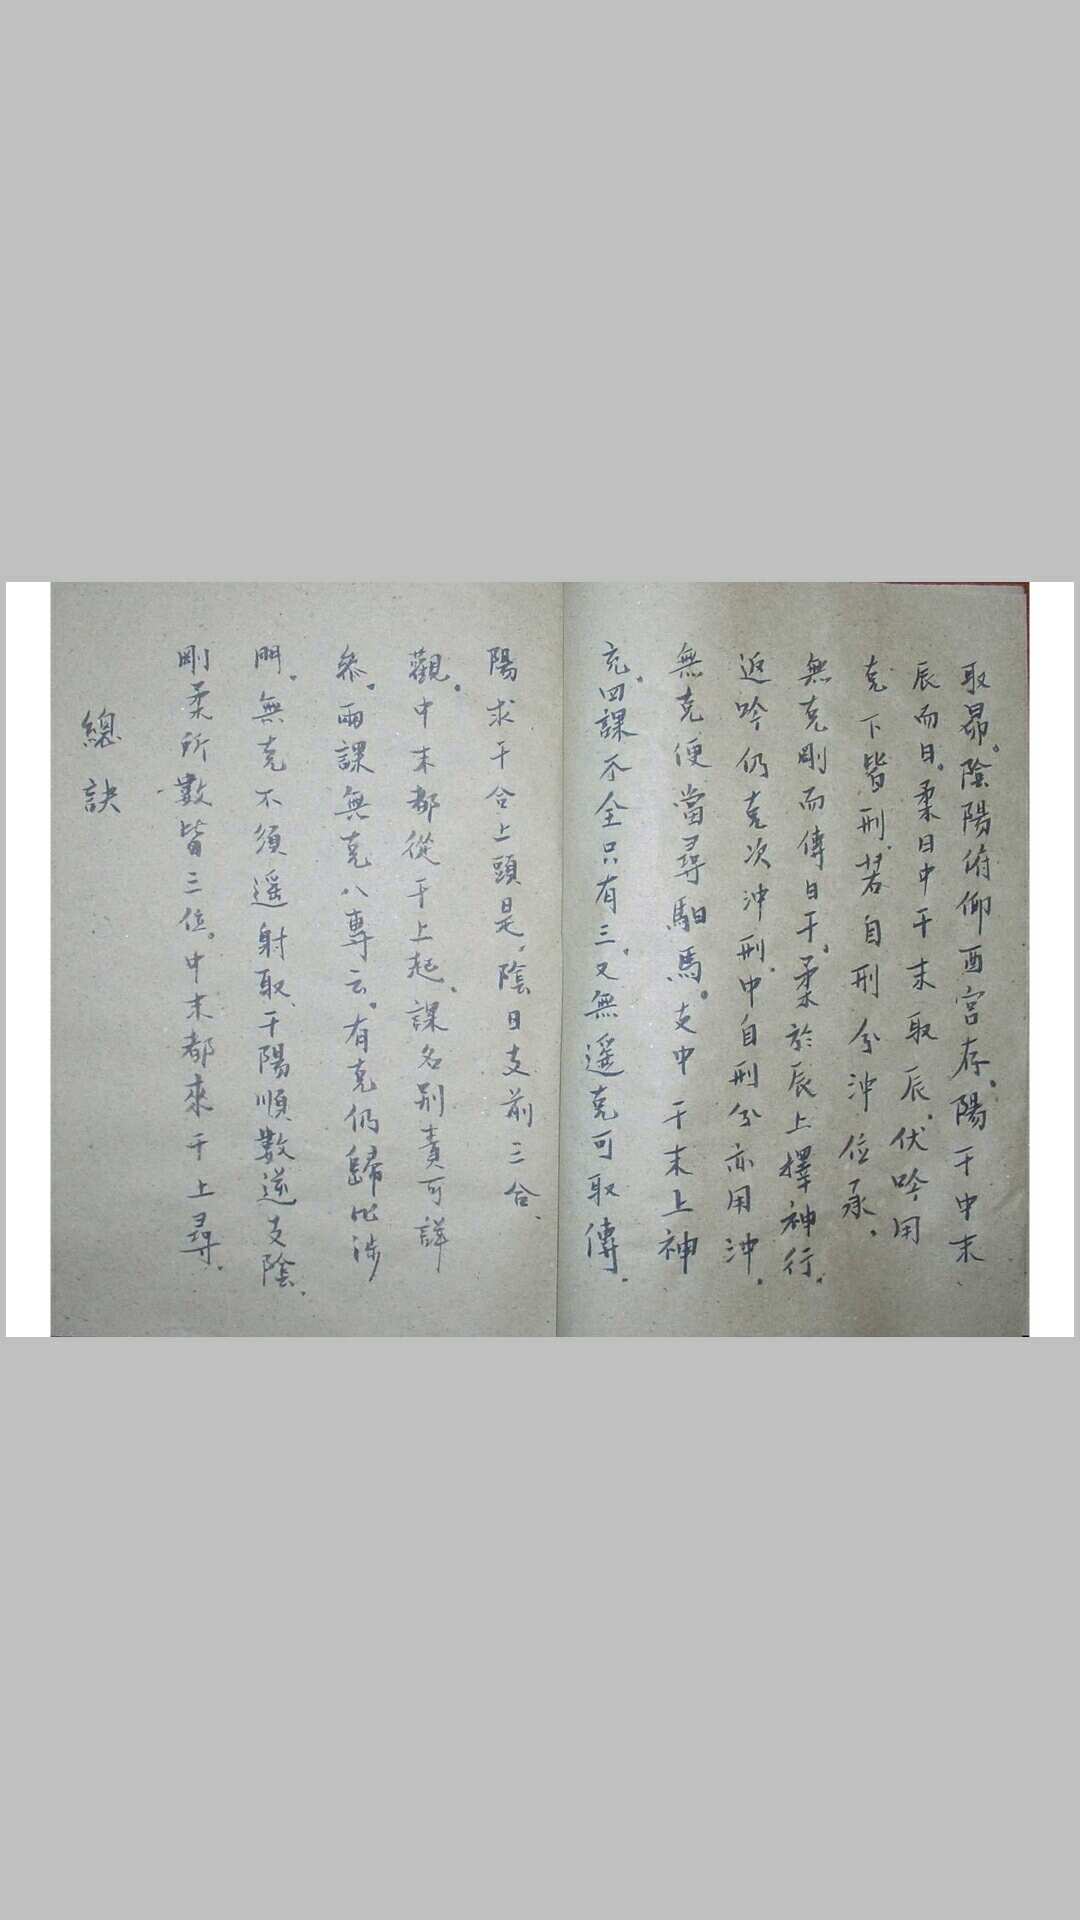 取昴。陰陽俯仰酉宮存。陽干中末
辰而日。柔日中干末取辰。伏吟用
克下皆刑。若自刑兮沖位承。
無克剛而傳日干。柔於辰上擇神行。
返吟仍克次沖刑。中自刑兮亦用沖。
無克便當尋馹馬。支中干末上神
充。四課不全只有三。又無遥克可取傳。
陽求干合上頭是。陰日支前三合、
觀。中末都從干上起。課名别責可詳
叅。兩課無克八專云。有克仍歸比涉
門。無克不須遥射取、干陽順數逆支陰。
剛柔所數皆三位。中末都來干上尋。
總訣